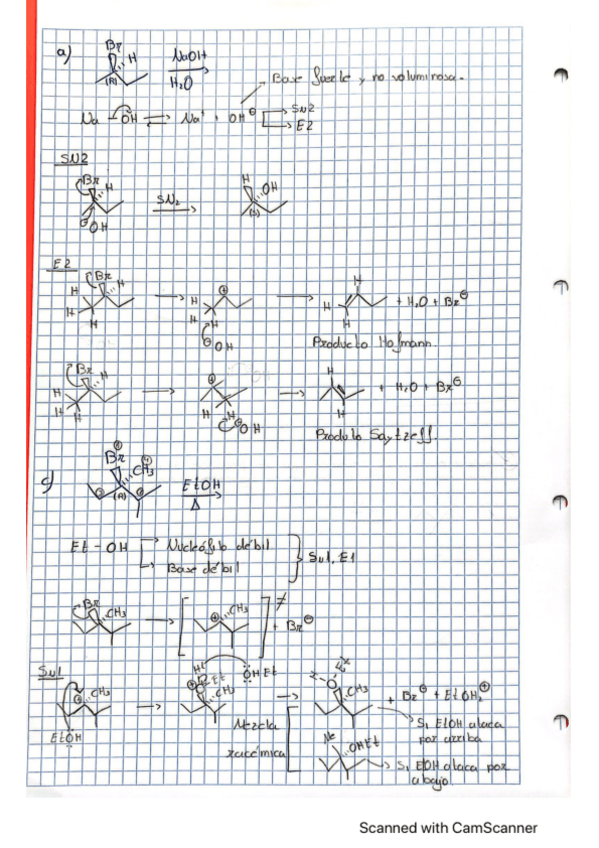 a) Br H NaOH
(R) H₂O
Base fuerte y no voluminosa.
Na - OH ⇌ Na⁺ + OH⊖ → SN2
→ E2
SN2
Br H SN₂ H OH
⊖OH (S)
E2
Br H
H H H H H H H + H₂O + Br⊖
⊖OH
Producto Hofmann.
Br H
H H H H H H H + H₂O + Br⊖
⊖OH
Produto Saytzeff.
c) Br CH₃ EtOH
(R) Δ
Et - OH → Nucleófilo débil
→ Base débil
SN1, E1
Br CH₃ → [ ⊕ CH₃ ]≠ + Br⊖
SN1
CH₃ H Et ÖHEt CH₃ Et CH₃ + Br⊖ + EtOH₂⊕
EtÖH
Si EtOH ataca
por arriba
Mezcla
racémica
Me OHEt
Si EtOH ataca por
abajo.
Scanned with CamScanner